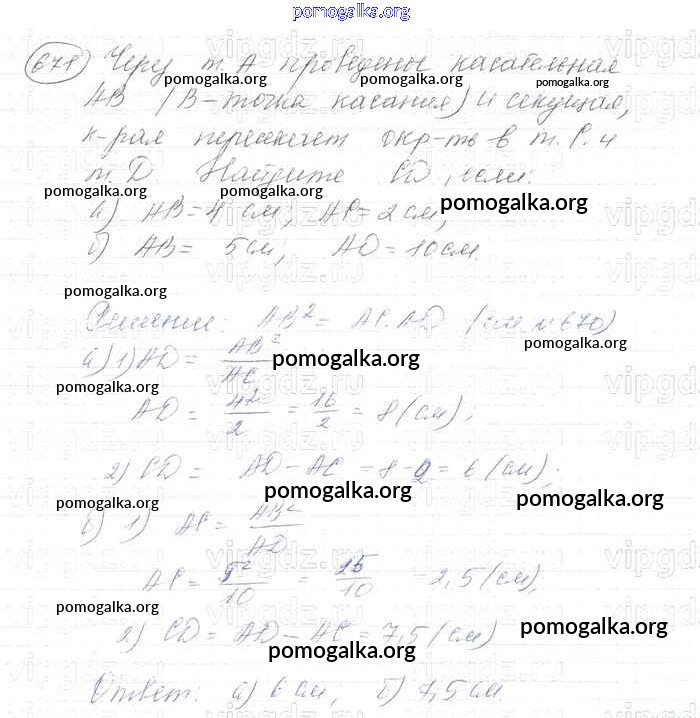 pomogalka.org
671 Через т. А проведены касательная
pomogalka.org pomogalka.org pomogalka.org
АВ (В-точка касания) и секущая,
к-рая пересекает окр-ть в т. С и
т. D. Найдите CD, если:
pomogalka.org pomogalka.org pomogalka.org
а) АВ = 4 см; АС = 2 см,
б) АВ = 5 см; AD = 10 см.
pomogalka.org pomogalka.org
pomogalka.org
Решение: AB² = AC·AD (см. №670)
pomogalka.org
а) 1) AD = AB²/AC
pomogalka.org
pomogalka.org
AD = 4²/2 = 16/2 = 8 (см),
2) CD = AD - AC = 8 - 2 = 6 (см);
pomogalka.org pomogalka.org
pomogalka.org
б) 1) AC = AB²/AD
AC = 5²/10 = 25/10 = 2,5 (см),
pomogalka.org
2) CD = AD - AC = 7,5 (см)
pomogalka.org
pomogalka.org
Ответ: а) 6 см; б) 7,5 см.